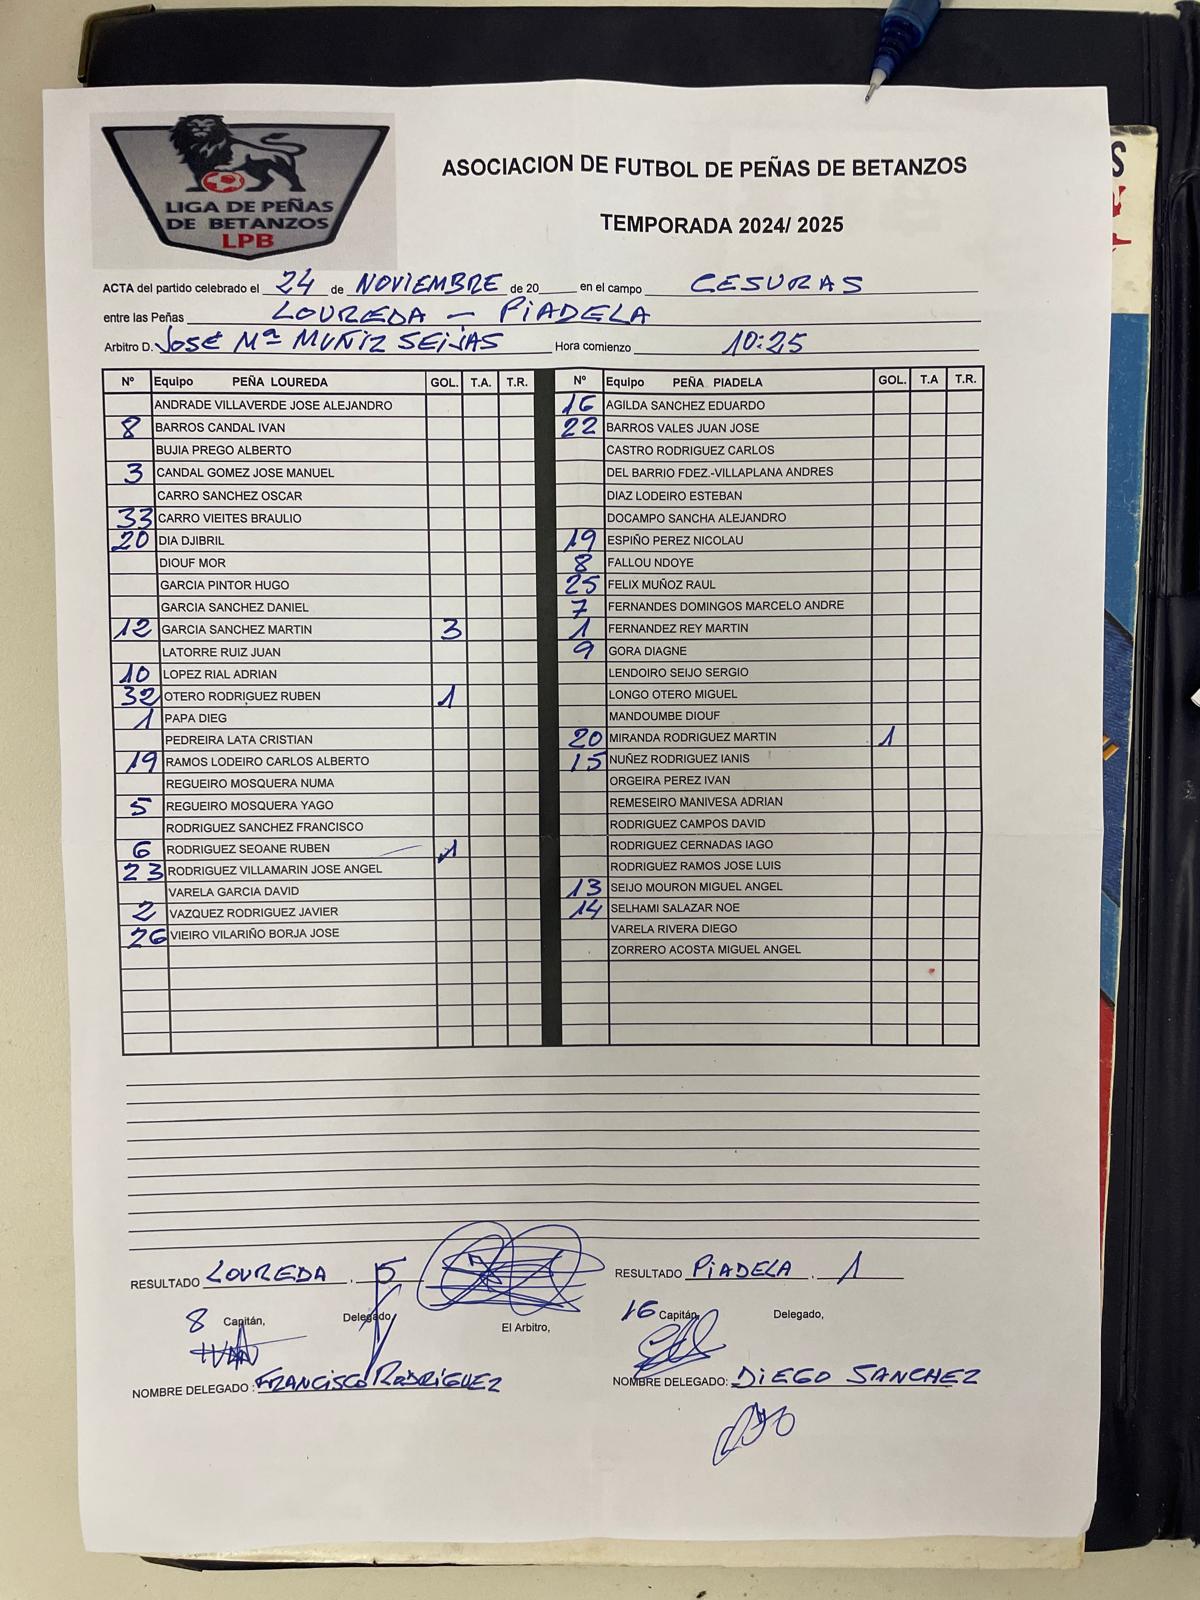 LIGA DE PEÑAS
DE BETANZOS
LPB
ASOCIACION DE FUTBOL DE PEÑAS DE BETANZOS
TEMPORADA 2024/ 2025
ACTA del partido celebrado el 24 de NOVIEMBRE de 20 en el campo CESURAS
entre las Peñas LOUREDA - PIADELA
Arbitro D. JOSÉ Mª MUÑIZ SEIJAS Hora comienzo 10:25
Nº Equipo PEÑA LOUREDA GOL. T.A. T.R.
ANDRADE VILLAVERDE JOSE ALEJANDRO
8 BARROS CANDAL IVAN
BUJIA PREGO ALBERTO
3 CANDAL GOMEZ JOSE MANUEL
CARRO SANCHEZ OSCAR
33 CARRO VIEITES BRAULIO
20 DIA DJIBRIL
DIOUF MOR
GARCIA PINTOR HUGO
GARCIA SANCHEZ DANIEL
12 GARCIA SANCHEZ MARTIN 3
LATORRE RUIZ JUAN
10 LOPEZ RIAL ADRIAN
32 OTERO RODRIGUEZ RUBEN 1
1 PAPA DIEG
PEDREIRA LATA CRISTIAN
19 RAMOS LODEIRO CARLOS ALBERTO
REGUEIRO MOSQUERA NUMA
5 REGUEIRO MOSQUERA YAGO
RODRIGUEZ SANCHEZ FRANCISCO
6 RODRIGUEZ SEOANE RUBEN 1
23 RODRIGUEZ VILLAMARIN JOSE ANGEL
VARELA GARCIA DAVID
2 VAZQUEZ RODRIGUEZ JAVIER
26 VIEIRO VILARIÑO BORJA JOSE
Nº Equipo PEÑA PIADELA GOL. T.A T.R.
16 AGILDA SANCHEZ EDUARDO
22 BARROS VALES JUAN JOSE
CASTRO RODRIGUEZ CARLOS
DEL BARRIO FDEZ.-VILLAPLANA ANDRES
DIAZ LODEIRO ESTEBAN
DOCAMPO SANCHA ALEJANDRO
19 ESPIÑO PEREZ NICOLAU
8 FALLOU NDOYE
25 FELIX MUÑOZ RAUL
7 FERNANDES DOMINGOS MARCELO ANDRE
1 FERNANDEZ REY MARTIN
9 GORA DIAGNE
LENDOIRO SEIJO SERGIO
LONGO OTERO MIGUEL
MANDOUMBE DIOUF
20 MIRANDA RODRIGUEZ MARTIN 1
15 NUÑEZ RODRIGUEZ IANIS
ORGEIRA PEREZ IVAN
REMESEIRO MANIVESA ADRIAN
RODRIGUEZ CAMPOS DAVID
RODRIGUEZ CERNADAS IAGO
RODRIGUEZ RAMOS JOSE LUIS
13 SEIJO MOURON MIGUEL ANGEL
14 SELHAMI SALAZAR NOE
VARELA RIVERA DIEGO
ZORRERO ACOSTA MIGUEL ANGEL
RESULTADO LOUREDA . 5
8 Capitán, Delegado,
IVAN
NOMBRE DELEGADO : FRANCISCO RODRIGUEZ
El Arbitro,
RESULTADO PIADELA . 1
16 Capitán, Delegado,
NOMBRE DELEGADO: DIEGO SANCHEZ